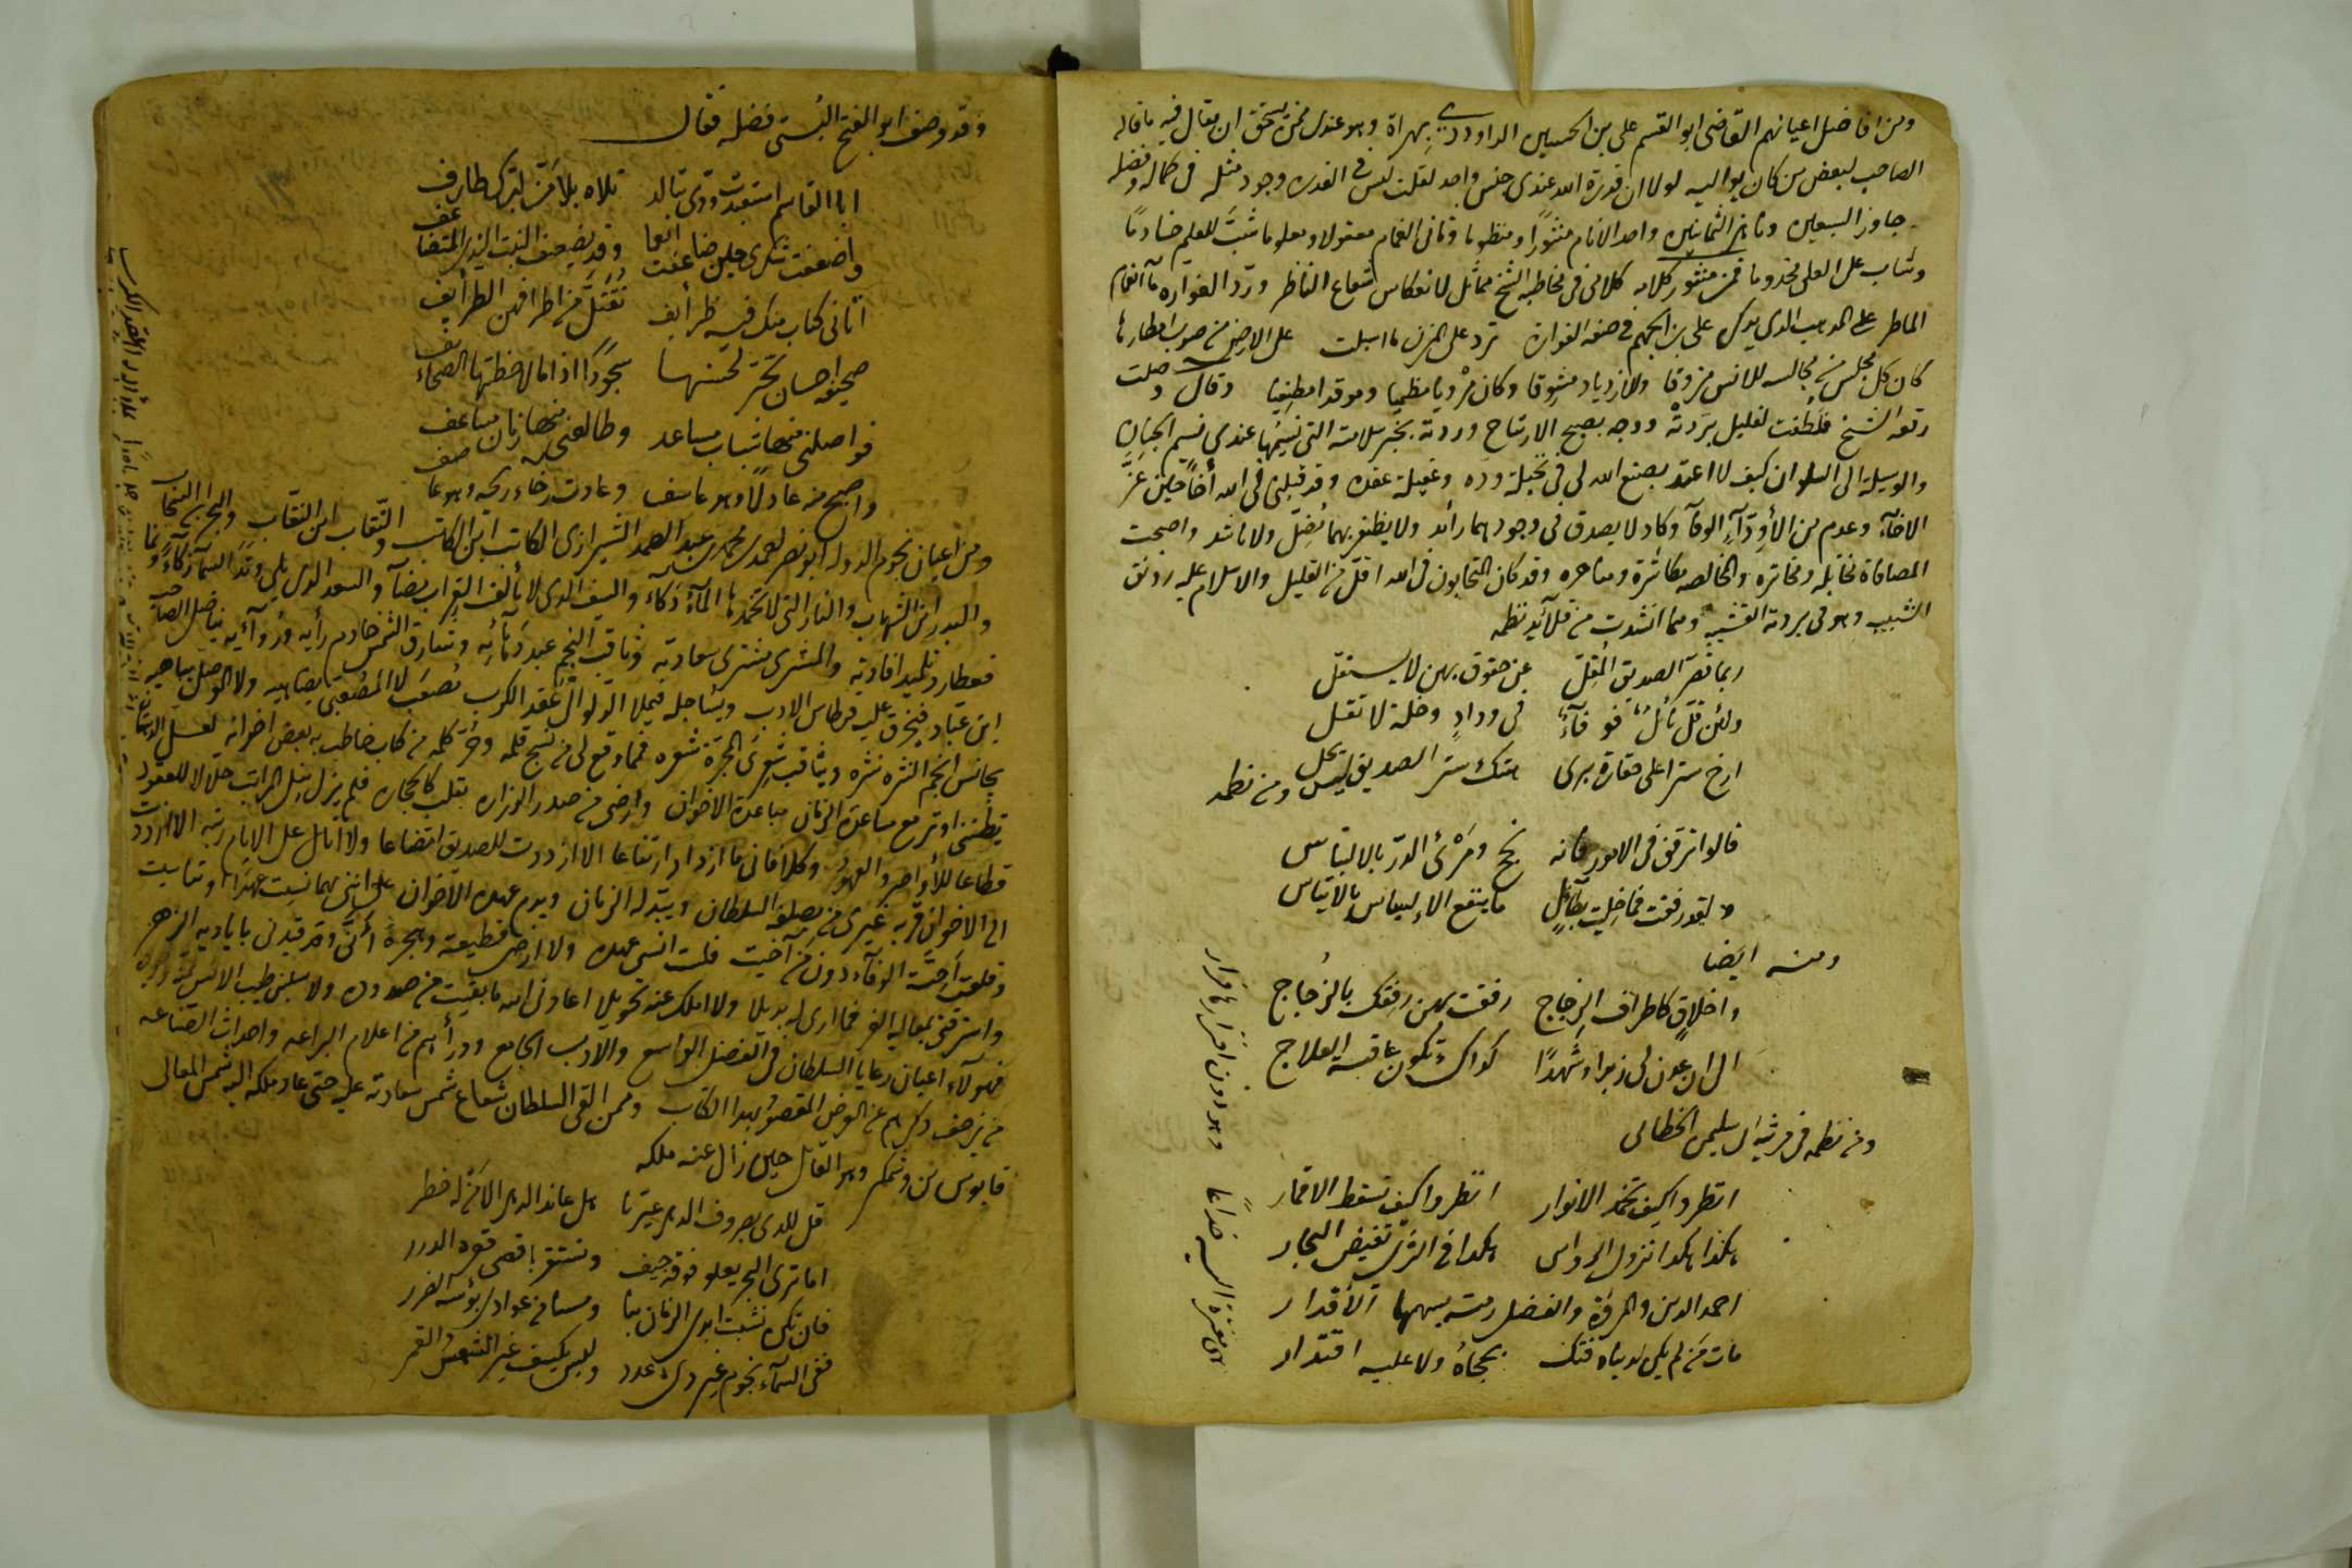 ومن افاضل اعيانهم القاضى ابو القسم على بن الحسين الداوودى بهراة وهو عندى ممن يستحق ان يقال فيه ما قاله
الصاحب لبعض من كان يواليه لولا ان قدرة الله عندى جنس واحد لقلت ليس فى القدرة وجود مثله فى كماله وفضله
جاوز السبعين وناهز الثمانين واحد الانام منثورا ومنظوما وثانى الغمام معقولا ومعلوما شبّ للعلم خادمًا
وشاب على العلى مخدوما فمن منثور كلامه كلامى فى مخاطبة الشيخ مماثل لانعكاس شعاع الناظر وردّ الفواره ماء الغمام
الماطر على المذهب الذى يدرك على بن الجهم فى صفه الفوارة ترد على المزن ما اسبلت على الارض من صوب امطارها
كان كل مجلس من مجالسه للانس مزوقا وللازدياد مشوقا وكان مرويا مظميا وموقدا مطفيا وقال وصلت
رقعة الشيخ فلطفت لغليل بردته ووجه بصبح الارتياح وردته بخبر سلامته التى نسيمها عندى نسيم الجنان
والوسيلة الى السلوان كيف لا اعتد بصنع الله لى فى نخيلة وده وعقيلة عقده وقد قبلنى فى الله أخاً حين عزّ
الاخآء وعدم من الأوِدّآءِ الوفآ وكاد لا يصدق فى وجودهما رائد ولا يظفر بهما مُضِلّ ولا ناشد واصبحت
المصافاة مخاتله ومخاتره والمخالصه مكاشرة ومناحره وقد كان المتحابون فى الله اقلّ من القليل والاسلام عليه رونق
الشبيب وهو فى بردته القشيب ومما انشدت من قلائد نظمه
ربما قصّر الصديق المُقِلّ عن حقوق بهن لا يستقل
ولئن قلّ نائلٌ فوفآءٌ فى ودادٍ وخلة لا تقل
ارخ سترا على حقارة برى هتك ستر الصديق ليس يحل ومن نظمه
قالوا ترقق فى الامور فانه نجح ومَرْئُ الدرّ بالابساس
ولقد رفقت فما حليت بطآئل ما ينفع الابساس بالاتياس
ومنه ايضا
واخلاق كاطراف الزجاج رفقت بهن رفقك بالزجاج
الى ان عدن لى زبدا وشهدًا كذاك تكون عاقبة العلاج
ومن نظمه فى مرثية ابى سليمن الخطابى
انظروا كيف تخمد الانوار انظروا كيف تسقط الاقمار
هكذا هكذا تزول الرواسى هكذا فى الثرى تغيض البحار
احمد الدين والمروّة والفضل رمته بسهمها الأقدار
مات من لم يكن لدنياه فتك بحجاهُ ولا عليه اقتدار
وقد وصف ابو الفتح البُستى فضله فقال
ابا القاسم استعبدت ودّى بتالد تلاه بلا مَنّ لبِرّك طارف
واضعفت شكرى حين ضاعفت انعما وقد يضعف النبت الندى المتضاعف
اتانى كتاب منك فيه ظرائف تُقتَلُ من اطرافهن الطرائف
صحيفة احسان تخرّ لحسنها سجودًا اذا ما لاحظتها الصحائف
فواصلنى منها شباب مساعد وطالعنى منها زمان مساعف
واصبح منه عادلًا وهو عاسف وعادت رخاء ريحه وهو عاصف
ومن اعيان نجوم الدولة ابو نصر احمد بن محمد بن عبد الصمد الشيرازى الكاتب ابن الكاتب والنّقاب ابن النقاب والبحر ابن السحاب
والبدر ابن الشهاب والنار التى لا تخمدها المآء ذكاءً والسيف الذى لا يألف القراب مضآء والسعد الذى يلى وتد السمآء ذكآء ونما
فعطارد تلميذ افادته والمشترى مشترى سعادته وثاقب النجم عبد دهائه وشارق الشمس خادم رأيه ورُوآئه يناضل الصاحب
ابن عبّاد فيخرق عليه قرطاس الادب ويساجله فيملا الدلو الى عقد الكرب تُصعّب لا المصعبى يضاهيه ولا الموصلى يباهيه
يجانس انجم النثره نثره ويثاقب شعرى المجرّة شعره فما وقع لى من نسج قلمه وحرّ كلمه من كتاب خاطب به بعض اخوانه لعل
يظننى اوثر مع مساعدة الزمان مباعدة الاخوان وارضى من صدر الوزارة بقلب كالحجاره فلم يزل نيل المراتب حلالا للعقود
قطاعا للأواصر والعهود وكلا فانى ما ازداد ارتفاعا الا ازددت للصديق اتضاعا ولا انال على الايام رتبة الا ازددت
الى الاخوان قربه غيرى من يصلفه السلطان ويبدله الزمان ويدم عهده الاخوان على اننى مهما نسيت عهدًا او تناسيت
وقلعت أخيّة الوفآء دون من آخيت فلست انسى عهده ولا ارضى قطيعته وهجره أنّى وقد قيدنى باياديه الزهر
واسترقنى بمعاليه الغر فما ارى له بديلا ولا املك عنه تحويلا اعاذنى الله ما بقيت من صدوده ولا سلبنى طيب الانس
فهولآء اعيان رعايا السلطان فى الفضل الواسع والادب الجامع وورآءهم من اعلام البراعه واحداث الصّناعه
من يزحف ذكرهم عن الغرض المقصود بهذا الكتاب وممن القى السلطان شعاع شمس سعادته عليه حتى عاد ملكه اليه شمس المعالى
قابوس بن وشمكير وهو القائل حين زال عنه ملكه
قل للذى بصروف الدهر عيّرنا هل عاند الدهر الا من له خطر
اما ترى البحر يعلو فوقه جيف وتستقر باقصى قعره الدرر
فان تكن نشبت ايدى الزمان بنا ومسنا من عوادى بؤسه الضرر
ففى السمآء نجوم غير ذى عدد وليس يكسف غير الشمس والقمر